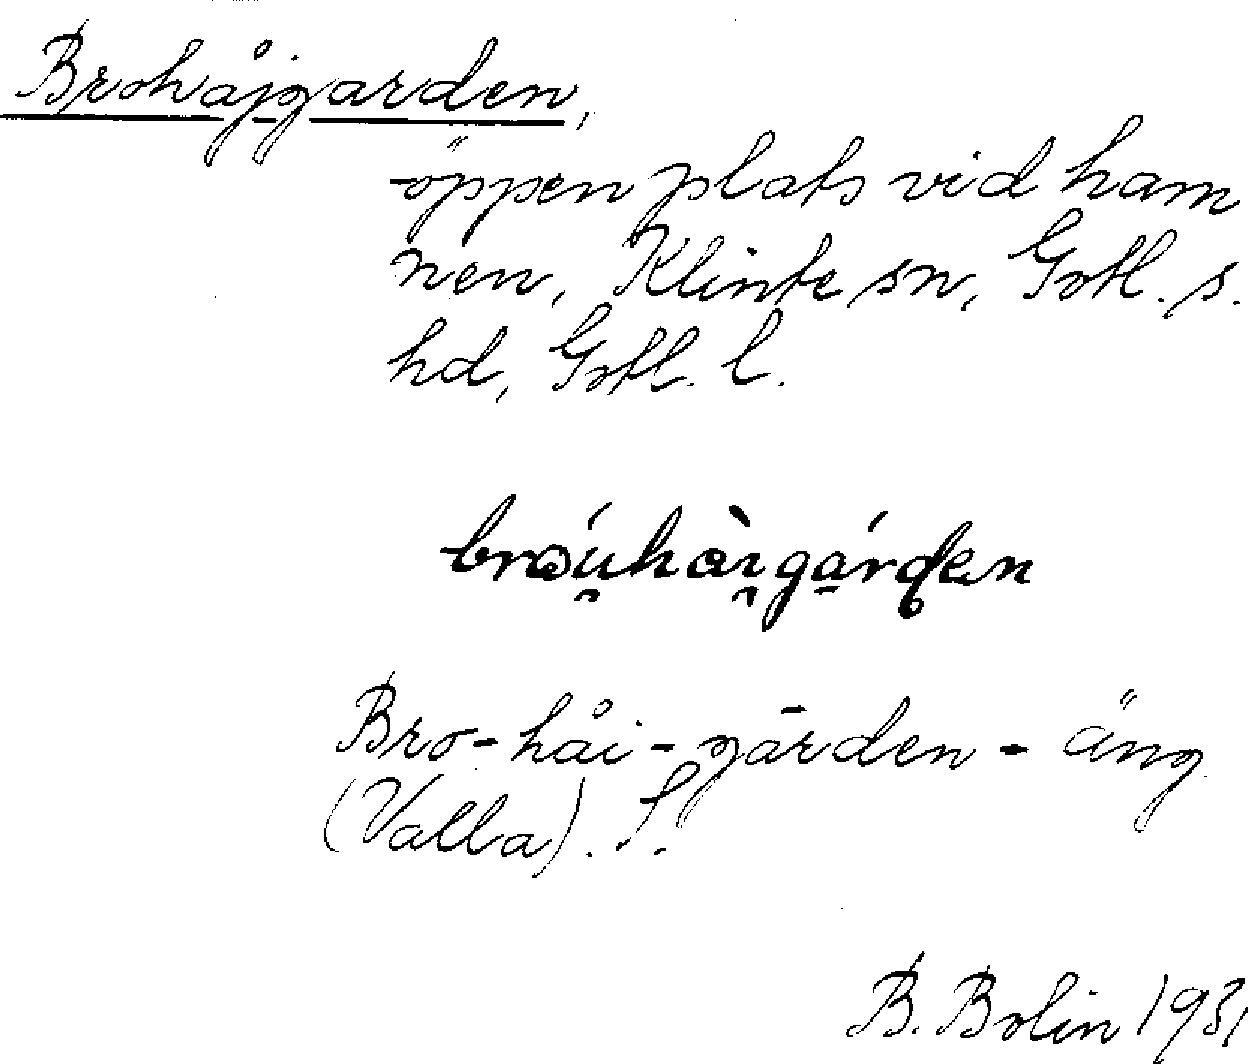 Brohåjgarden,
öppen plats vid ham
nen, Klinte sn, Gotl. s.
hd, Gotl. l.
Bro-håi-gārden - äng
(Valla). S.
B. Bolin 1931